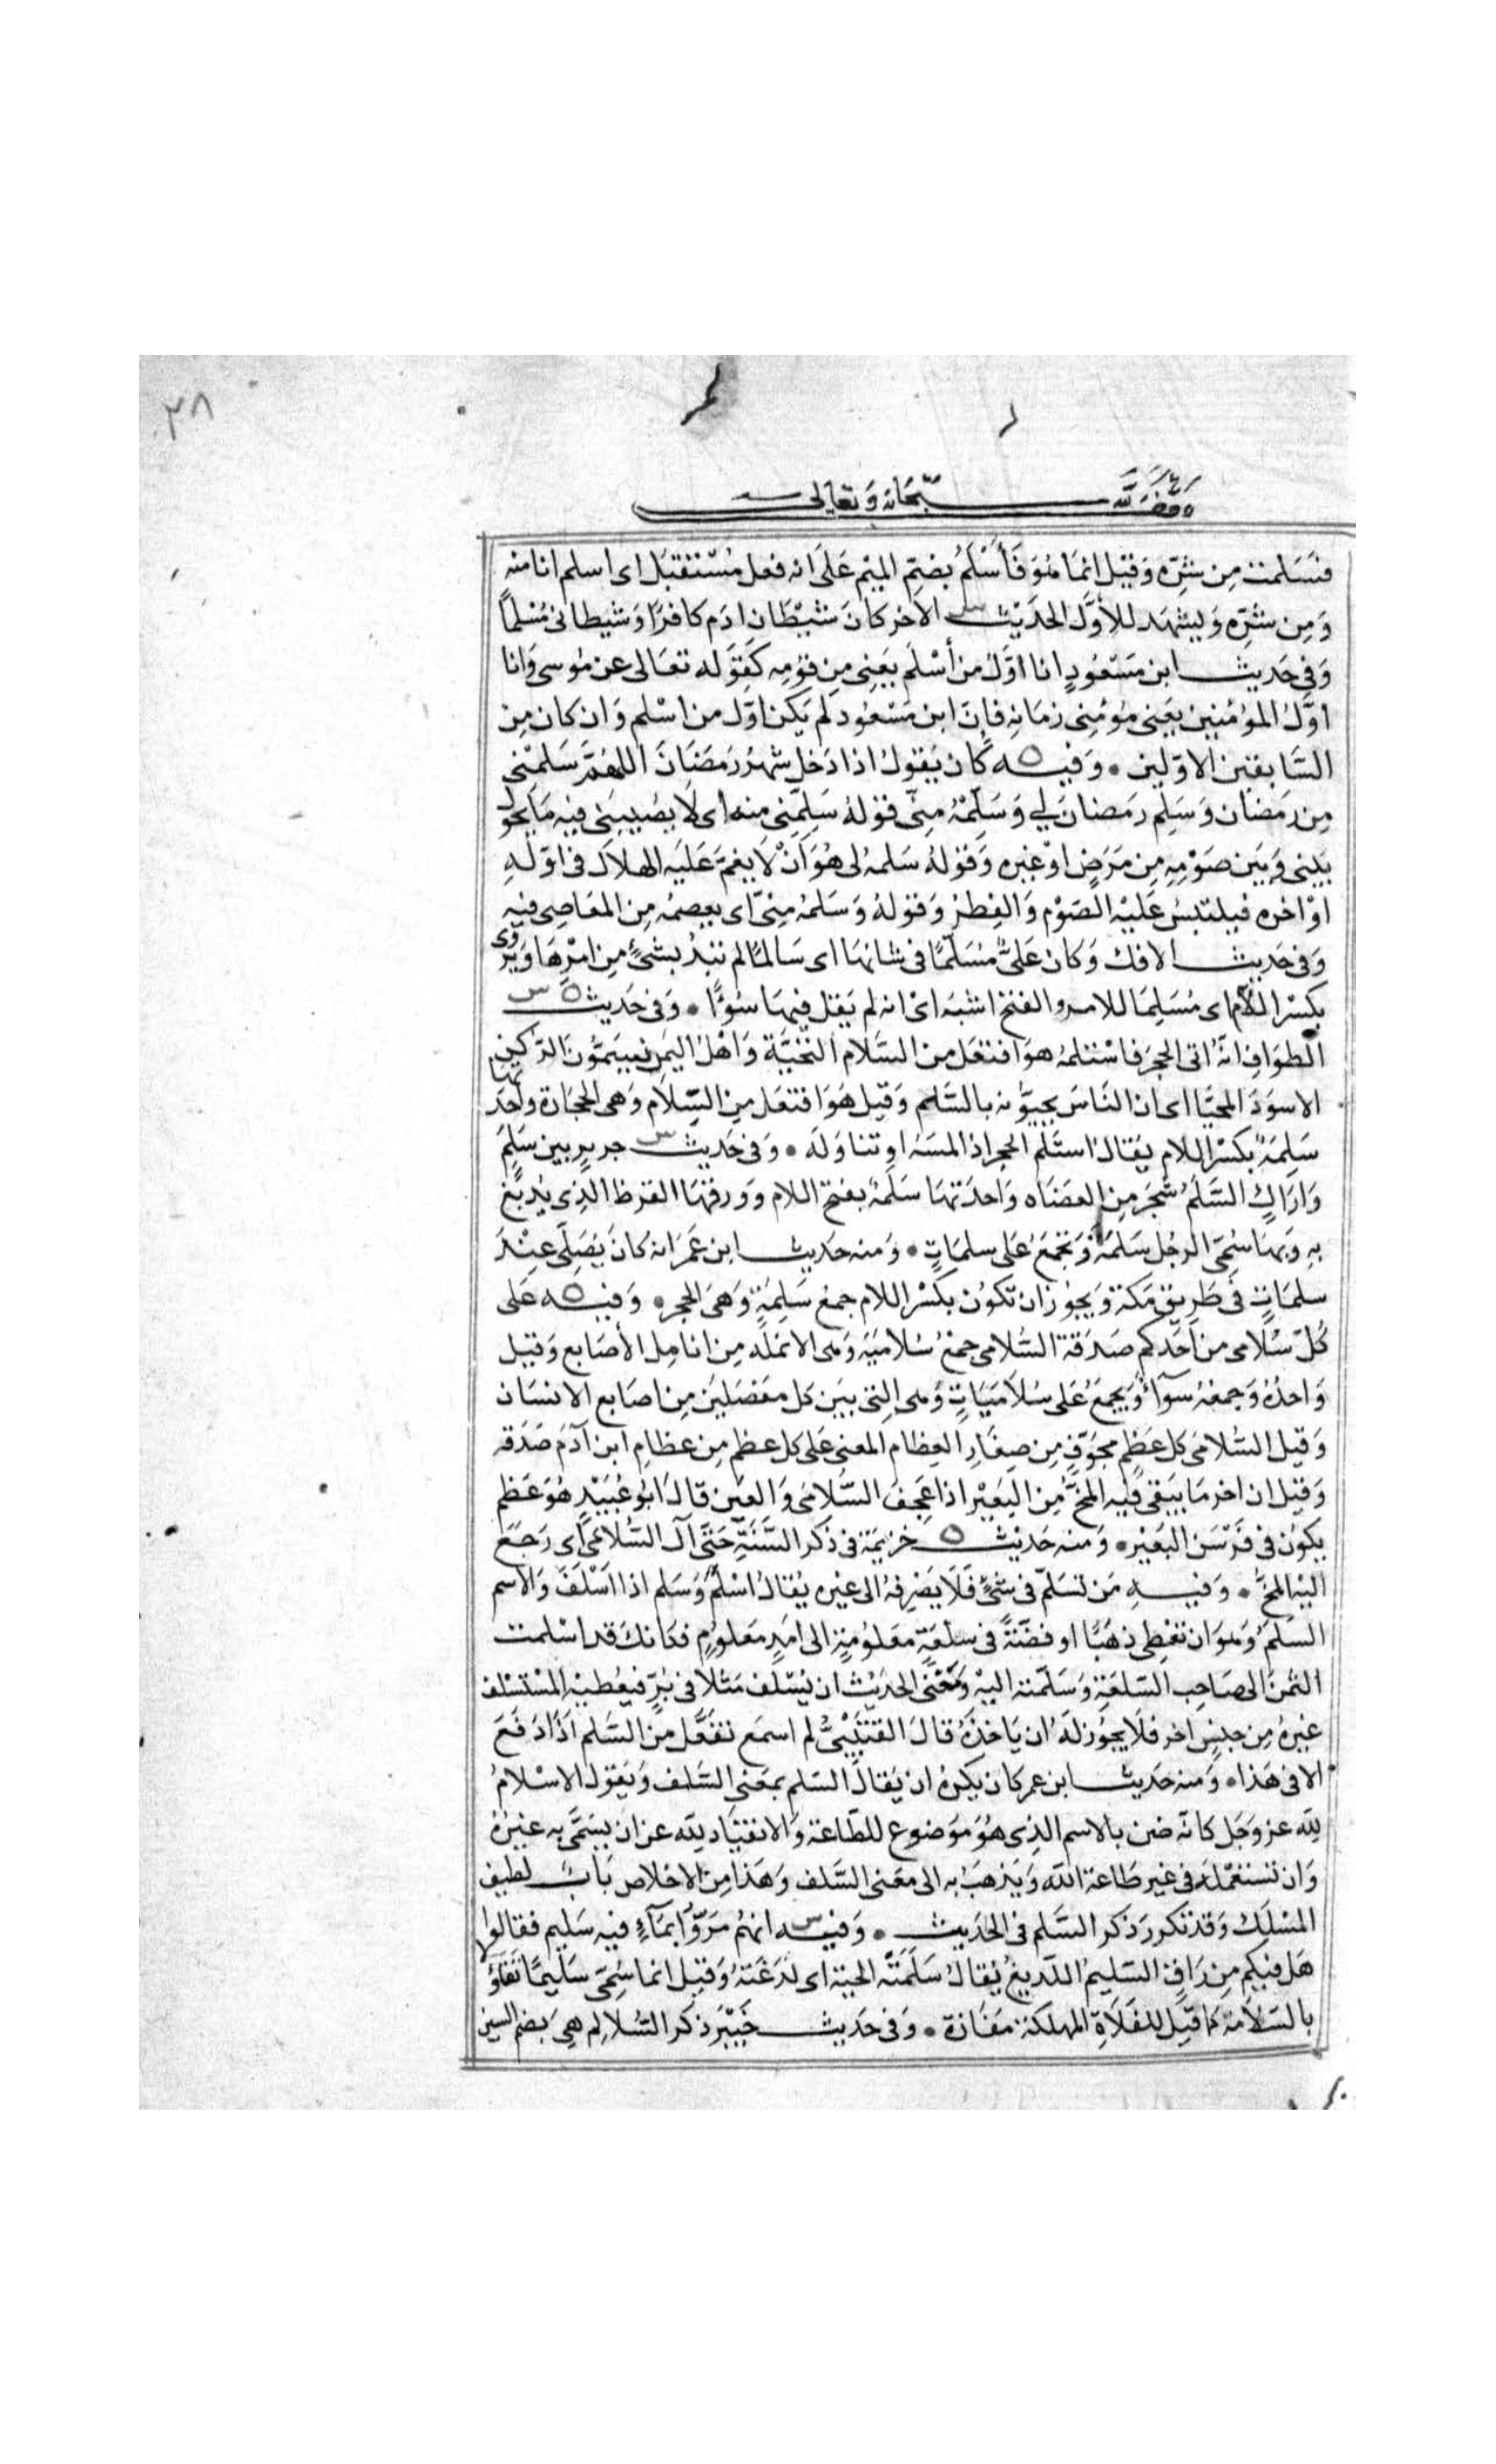 ٣٨
وقف لله سبحانه وتعالى
فسَلمت مِن شرّه وَقيل انما هُوَ فَأَسْلَمُ بضم الميم عَلَى انه فعل مُسْتقبَل اى اسلم انا منه
وَمِن شرّه وَيشهَد للأوَّل الحَدِيث الآخر كانَ شيْطان ادَم كافرًا وَشيطانى مُسْلمًا
وَفى حَديث ابن مَسْعُودٍ انا اوّلُ من أسْلمَ يَعنِى مِن قومِه كَقَوله تعَالى عن مُوسى وَانا
اوّلُ المؤمنين يَعنى مؤمِنى زمَانِه فإنّ ابن مَسْعُود لم يَكن اوّل من اسْلم وَان كان مِن
السَّابقين الاوّلين ٠ وَفيه كان يَقولُ اذا دَخل شهرُ رَمَضَانَ اللهُمَّ سَلمْنى
مِن رَمَضَان وَسَلِّم رمَضانَ لي وَسَلِّمْهُ مِنّى قوله سَلِّمنِى منه اى لَا يصُيبَنى فيه مَا يحَول
بَيْنى وَبَين صَوْمِهِ مِن مَرَضٍ اوْ غيره وَقوْلهُ سَلمهُ لى هُوَ أَنْ لَا يغمَّ عَليَه الهلال فى اوّلهِ
اوْ اخره فيلتبسُ عَليْه الصَوْم وَالفِطرُ وَقولهُ وَسَلمهُ مِنّى اى يعصمُه مِن المعَاصِى فيه
وَفى حَديث الافك وَكان عَليٌّ مُسَلَّمًا فى شانهَا اى سَالمًا لم تبدُ بشئٍ مِن امْرِهَا وَيرْوى
بكسْر اللام اى مُسَلِمًا للامر والفتح اشبَه اىْ انه لم يَقل فيهَا سُوْءًا ٠ وَفى حَديث
الطوَافِ انَّهُ اتى الحجَرَ فاسْتلمهُ هوَ افتعَل من السَّلام التحيَّة وَاهْلُ اليَمَن يُسَمُّونَ الركن
الاسوَدَ المحيَّا اى ان النّاسَ يحيّونه بالسَّلام وَقيل هُوَ افتعَل مِن السِّلَام وَهى الحجَارة واحدَتها
سَلِمَةٌ بكسْر اللام يُقالُ استلم الحجر اذا لمسَهُ او تناوَلهُ ٠ وَفى حَديث جريرٍ بين سَلَم
وَارَاكٍ السَّلَمُ شجَر مِن العضَاه وَاحدَتهَا سَلمَةٌ بفتح اللام وَورقهَا القرظ الذِى يُدبَغ
بهِ وَبهَا سُمِّىَ الرجُل سَلمَة وَتجمَعُ عَلى سلمَاتٍ ٠ وَمنه حَديث ابن عُمَرَ انه كان يُصَلّى عِنْدَ
سلمَاتٍ فى طَرِيق مَكة وَيجوُز ان تكوُن بكَسْر اللام جمع سَلِمَةٍ وَهَى الحجر ٠ وَفيه عَلى
كُلّ سُلامى من احَدكم صَدَقة السُّلامى جمْعُ سُلاميَة وَهى الانملة مِن انامِل الأصَابع وَقيل
وَاحدُهُ وَجمعهُ سوَآءٌ وَيجمَعُ عَلى سُلاَمَيَاتٍ وَهى التى بيَن كل مفصَليَن مِن اصَابع الانسَان
وَقيل السُّلامَى كل عَظمٍ مجوّفٍ مِن صغَارِ العِظام المعنى عَلى كل عظم مِن عظامِ ابن آدَمَ صَدَقة
وَقيْل ان اخر مَا يَبقى فيْه المخُّ مِن البَعيْر اذا عَجِفَ السُّلامَى وَالعَين قالَ ابُو عُبَيْدٍ هُوَ عَظم
يكوُن فى فرْسَن البعَيْر ٠ وَمنه حَديث خزيمَة فى ذكر السَّنَةِ حَتَّى آل السُّلامَى اى رَجَعَ
اليْهِ المخُّ ٠ وَفيهِ مَن تسَلّمَ فى شئٍ فَلَا يَصْرِفهُ الى غيره يُقالُ اسْلَمَ وَسَلم اذا اسْلَفَ وَالاسم
السَّلَمُ وَهوَ ان تعْطِى ذهَبًا او فضَّةً فى سلْعَةٍ معلوُمةٍ الى امَدٍ معَلوُمٍ فكَانكَ قد اسْلمت
الثمنَ الى صَاحِب السّلعَةِ وَسَلّمته اليْه وَمَعْنى الحَديْث ان يُسْلف مَثلا فى بُرٍّ فيعْطيْه المسْتسْلف
غيرَهُ مِن جنسٍ اخر فلَا يجُوز لَهُ ان يَاخذَهُ قالَ القتَيْبىُّ لم اسمَع تفَعَّل منَ السَّلم اذَا دَفَعَ
الا فى هَذا ٠ وَمنه حَديث ابن عمر كان يكرَهُ ان يُقالَ السّلم بمَعْنى السَّلف وَيَقوْل الاسْلامُ
لله عز وَجَل كانّه ضن بالاسم الذِى هُوَ مَوْضوع للطّاعة وَالانقيَاد لله عن ان يسَمّى به غيْرهُ
وَان تسْتعْملهُ فى غير طَاعة الله وَيَذهَبُ به الى معَنى السَّلف وَهَذا مِن الاخلاص بَابٌ لطيف
المسْلك وَقد تكرر ذكر السَّلم فى الحَديث ٠ وَفيه انهمُ مَرّوُا بمَآءٍ فيه سَليم فقالوا
هَل فيكم مِن رَاقٍ السّليمُ اللّديغُ يُقالُ سَلَمَتْه الحية اى لدَغَتهُ وَقيل انما سُمِّىَ سَليمًا تفَاؤلا
بالسّلَامَة كما قيْل للفَلَاةِ المهلكة مفَازة ٠ وَفى حَديث خَيْبَرَ ذكر السُّلالِم هِىَ بَضم السين